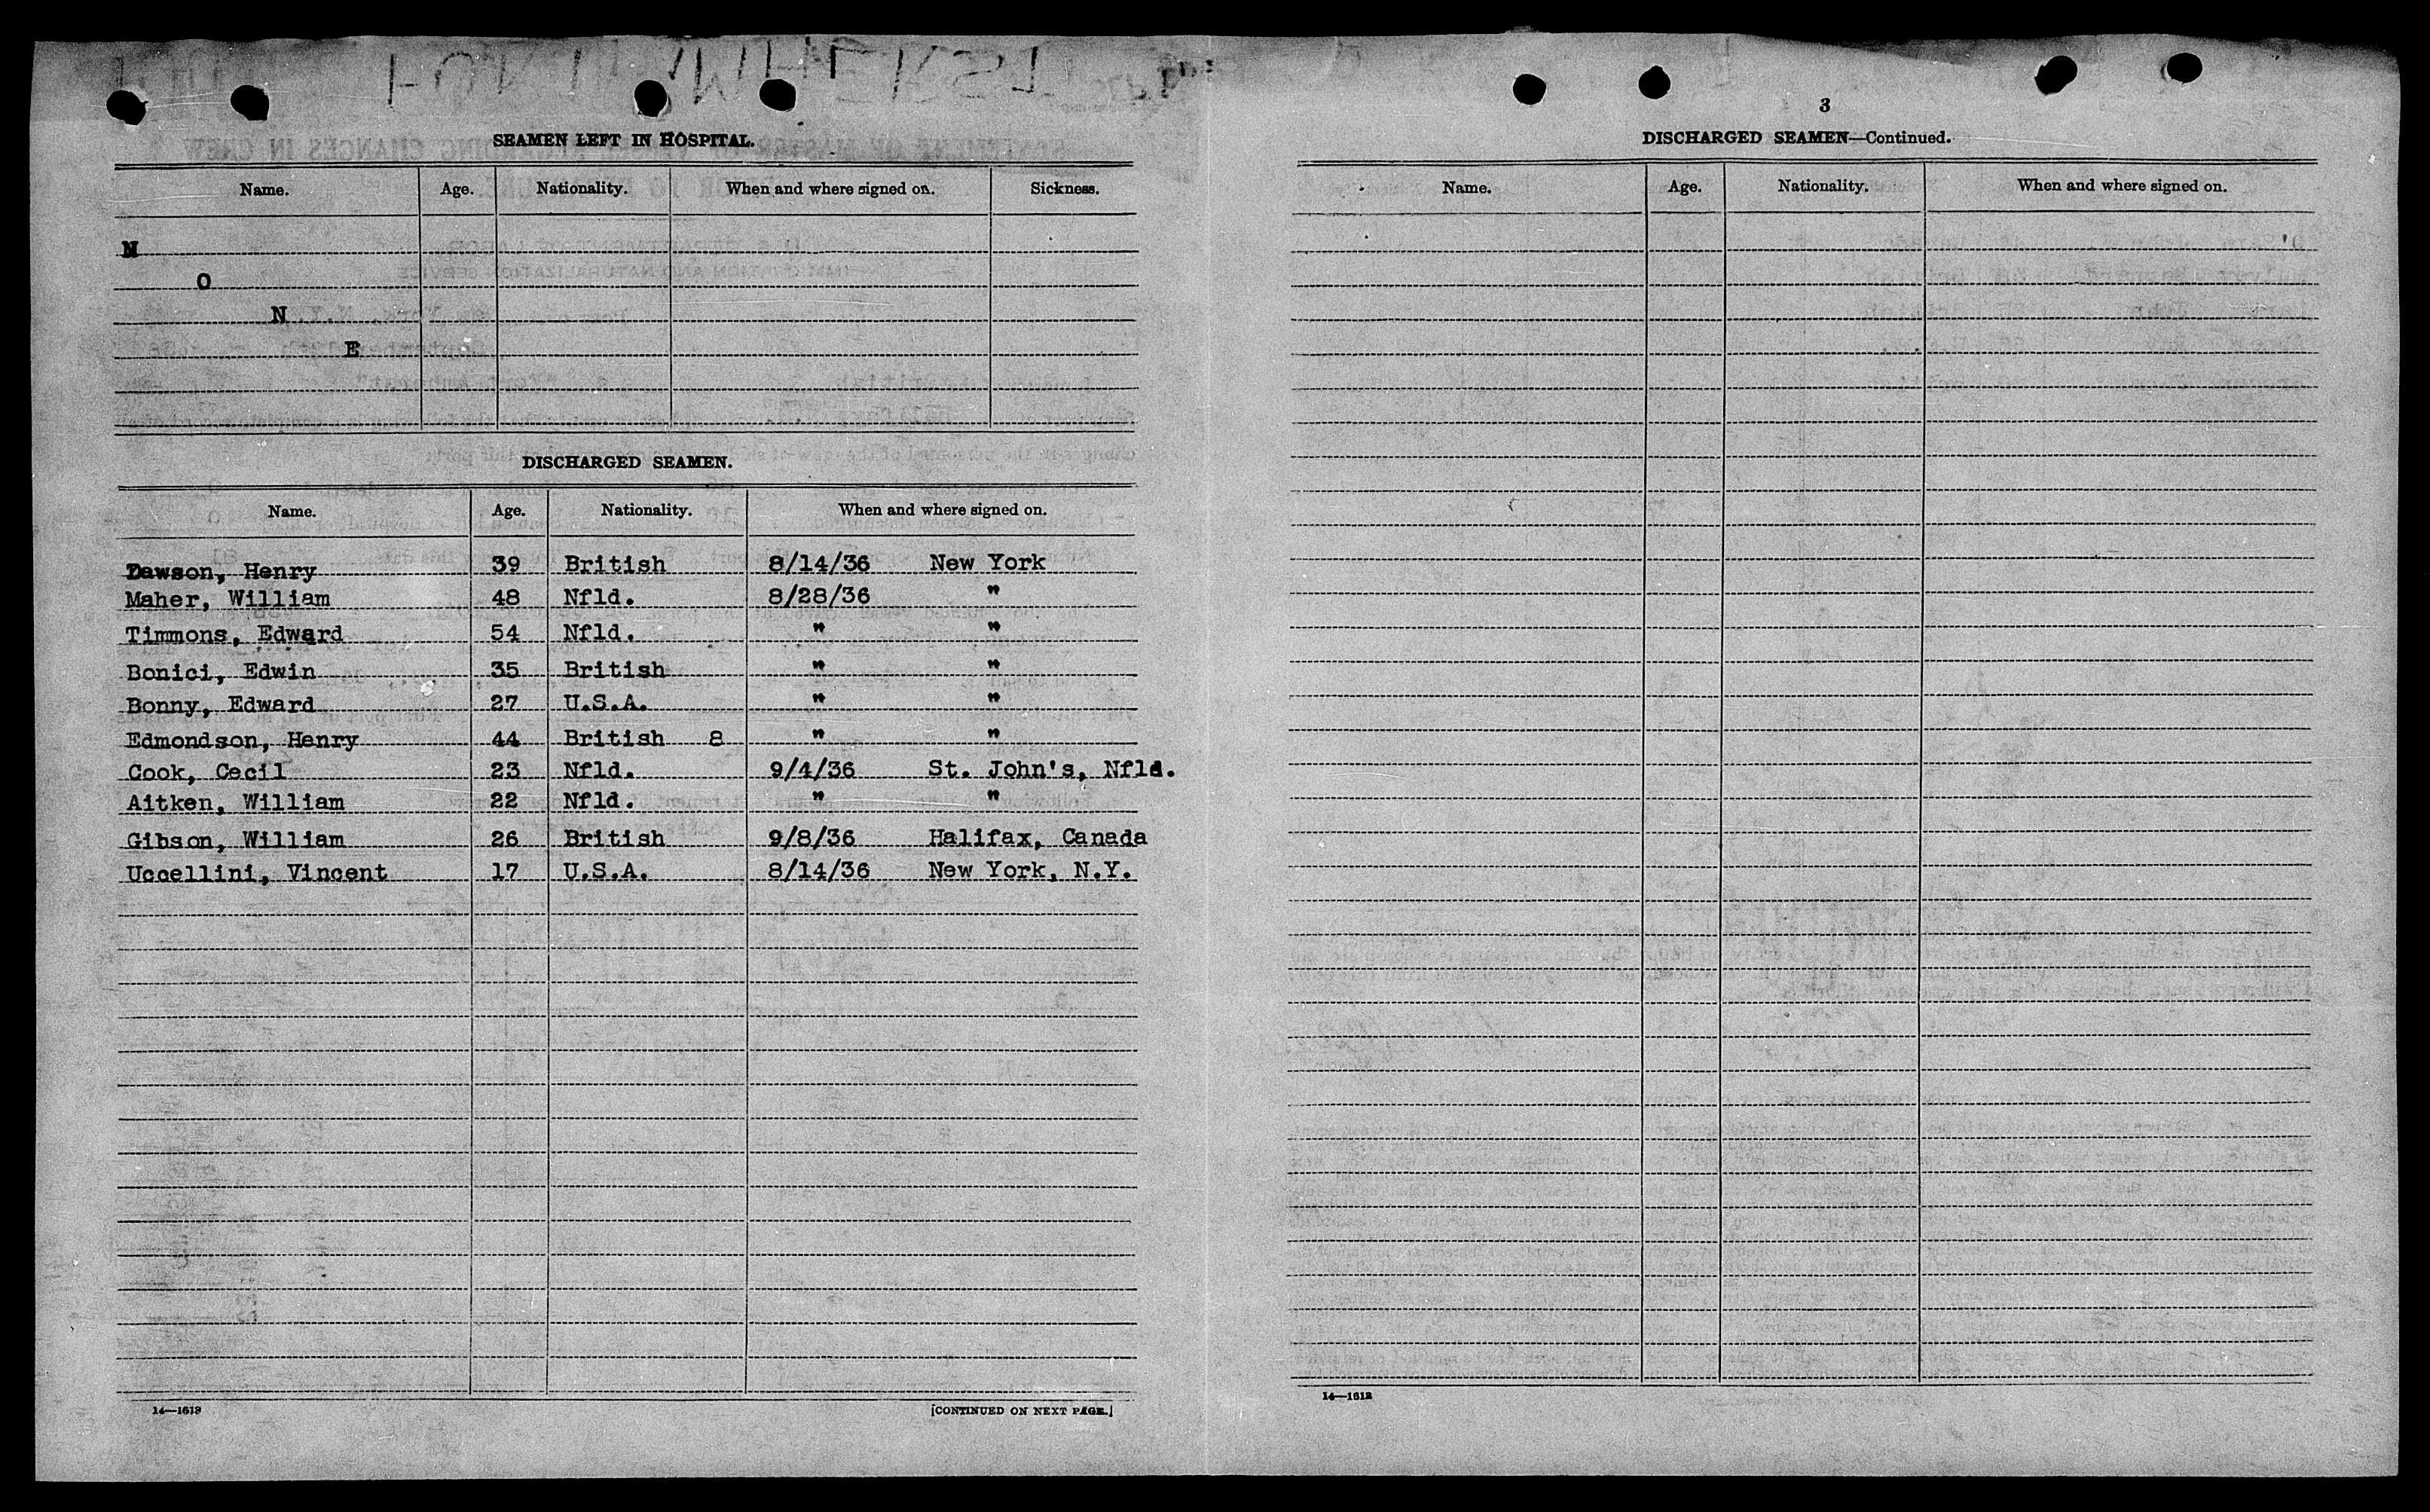 FORT AMHERST
SEAMEN LEFT IN HOSPITAL.
Name. Age. Nationality. When and where signed on. Sickness.
N
O
N
E
DISCHARGED SEAMEN.
Name. Age. Nationality. When and where signed on.
Dawson, Henry 39 British 8/14/36 New York
Maher, William 48 Nfld. 8/28/36 "
Timmons, Edward 54 Nfld. " "
Bonici, Edwin 35 British " "
Bonny, Edward 27 U.S.A. " "
Edmondson, Henry 44 British 8 " "
Cook, Cecil 23 Nfld. 9/4/36 St. John's, Nfld.
Aitken, William 22 Nfld. " "
Gibson, William 26 British 9/8/36 Halifax, Canada
Uccellini, Vincent 17 U.S.A. 8/14/36 New York, N.Y.
14—1613
[CONTINUED ON NEXT PAGE.]
3
DISCHARGED SEAMEN—Continued.
Name. Age. Nationality. When and where signed on.
14—1613